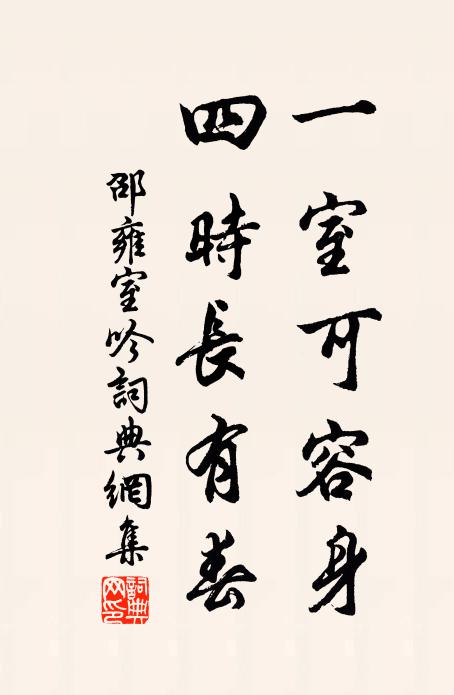 一室可容身
四時長有春
邵雍室吟詞典網集
詞典網印